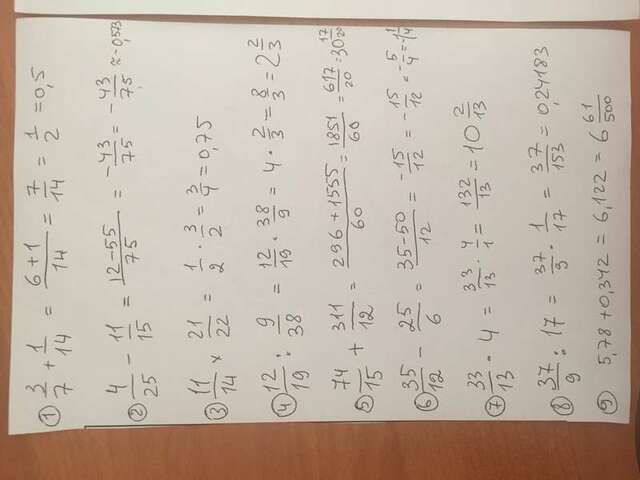 ① 3/7 + 1/14 = (6+1)/14 = 7/14 = 1/2 = 0,5
② 4/25 − 11/15 = (12−55)/75 = −43/75 = −43/75 ≈ −0,573
③ 11/14 × 21/22 = 1/2 · 3/2 = 3/4 = 0,75
④ 12/19 : 9/38 = 12/19 · 38/9 = 4 · 2/3 = 8/3 = 2 2/3
⑤ 74/15 + 311/12 = (296+1555)/60 = 1851/60 = 617/20 = 30 17/20
⑥ 35/12 − 25/6 = (35−50)/12 = −15/12 = −15/12 = −5/4 = −1 1/4
⑦ 33/13 · 4 = 33/13 · 4/1 = 132/13 = 10 2/13
⑧ 37/9 : 17 = 37/9 · 1/17 = 37/153 = 0,24183
⑨ 5,78 + 0,342 = 6,122 = 6 61/500